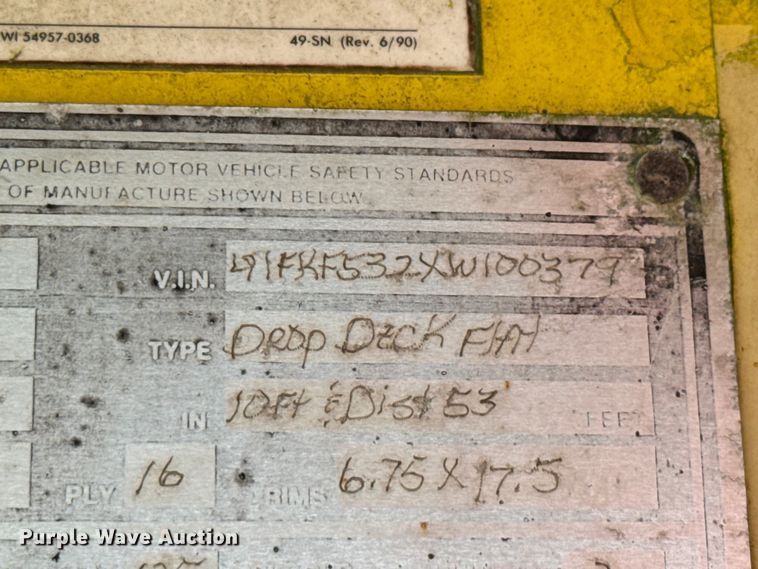 WI 54957-0368 49-SN (Rev. 6/90)
APPLICABLE MOTOR VEHICLE SAFETY STANDARDS
OF MANUFACTURE SHOWN BELOW
V.I.N. 41FKF532XW1003797
TYPE Drop Deck Flat
IN 10Ft & Dist 53 FEET
PLY 16 RIMS 6.75 X 17.5
Purple Wave Auction